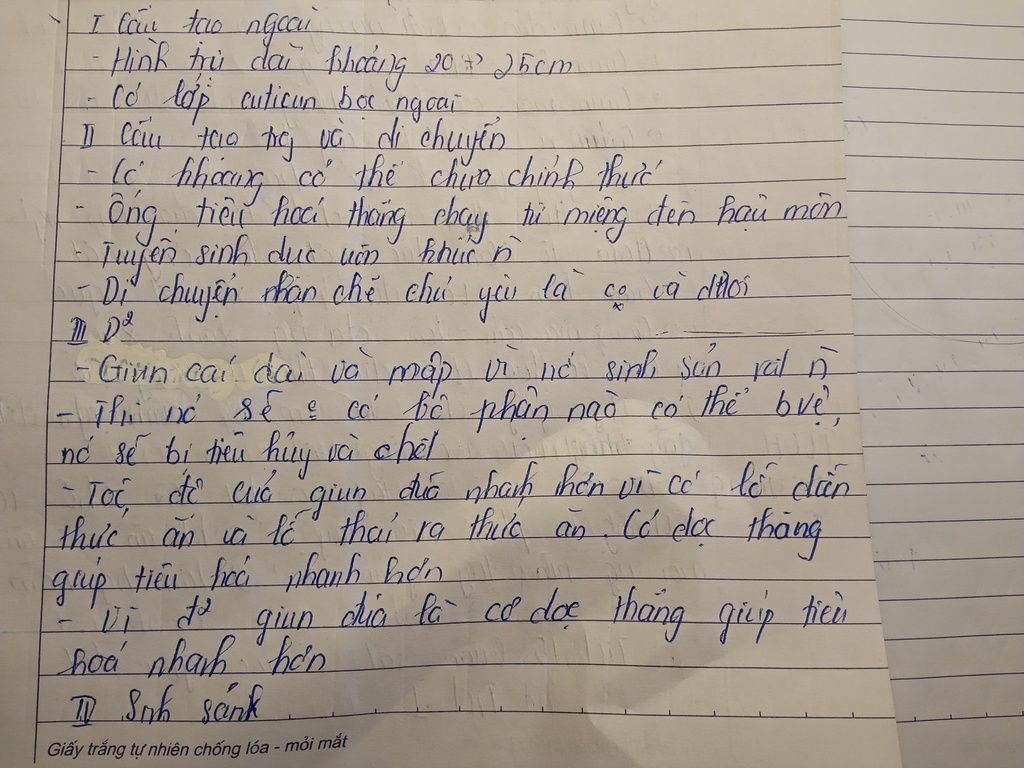 I Cấu tạo ngoài
- Hình trụ dài khoảng 20 → 25cm
- Có lớp cuticun bọc ngoài
II Cấu tạo trg và di chuyển
- Có khoang cơ thể chưa chính thức
- Ống tiêu hoá thẳng chạy từ miệng đến hậu môn
- Tuyến sinh dục uốn khúc n
- Di chuyển nhạn chế chủ yếu là co và dhỗi
III D²
- Giun cái dài và mập vì nó sinh sản rất n
- Thì nó sẽ có bộ phận nào có thể bvệ,
nó sẽ bị tiêu hủy và chết
- Tốc độ của giun đũa nhanh hơn vì có lỗ dẫn
thức ăn và lỗ thải ra thức ăn. Có dọc thẳng
giúp tiêu hoá nhanh hơn
- Vì đ² giun đũa là cơ dọc thẳng giúp tiêu
hoá nhanh hơn
IV Snh sánh
Giấy trắng tự nhiên chống lóa - mỏi mắt